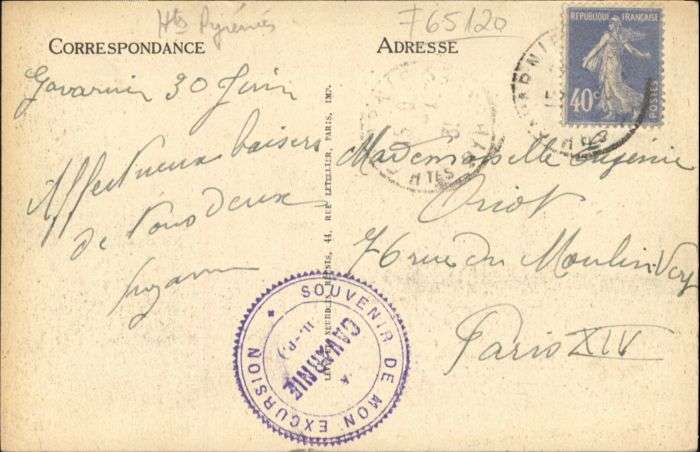 Htes Pyrénées
F65120
CORRESPONDANCE
ADRESSE
REPUBLIQUE FRANÇAISE
40c
POSTES
Gavarnie 30 Juin
Affectueux baisers
de tous deux
Suzanne
Mademoiselle Eugénie
Oriot
76 rue du Moulin-Vert
Paris XIV
44, RUE LETELLIER, PARIS, IMP.
SOUVENIR DE MON EXCURSION
GAVARNIE
Htes